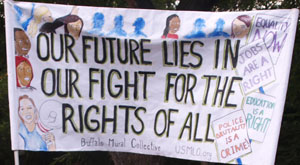 OUR FUTURE LIES IN
OUR FIGHT FOR THE
RIGHTS OF ALL
Buffalo Mural Collective USMLO.org
EQUALITY
NOW
JOBS
ARE A
RIGHT
EDUCATION
is A
RIGHT
POLICE
BRUTALITY
IS A
CRIME